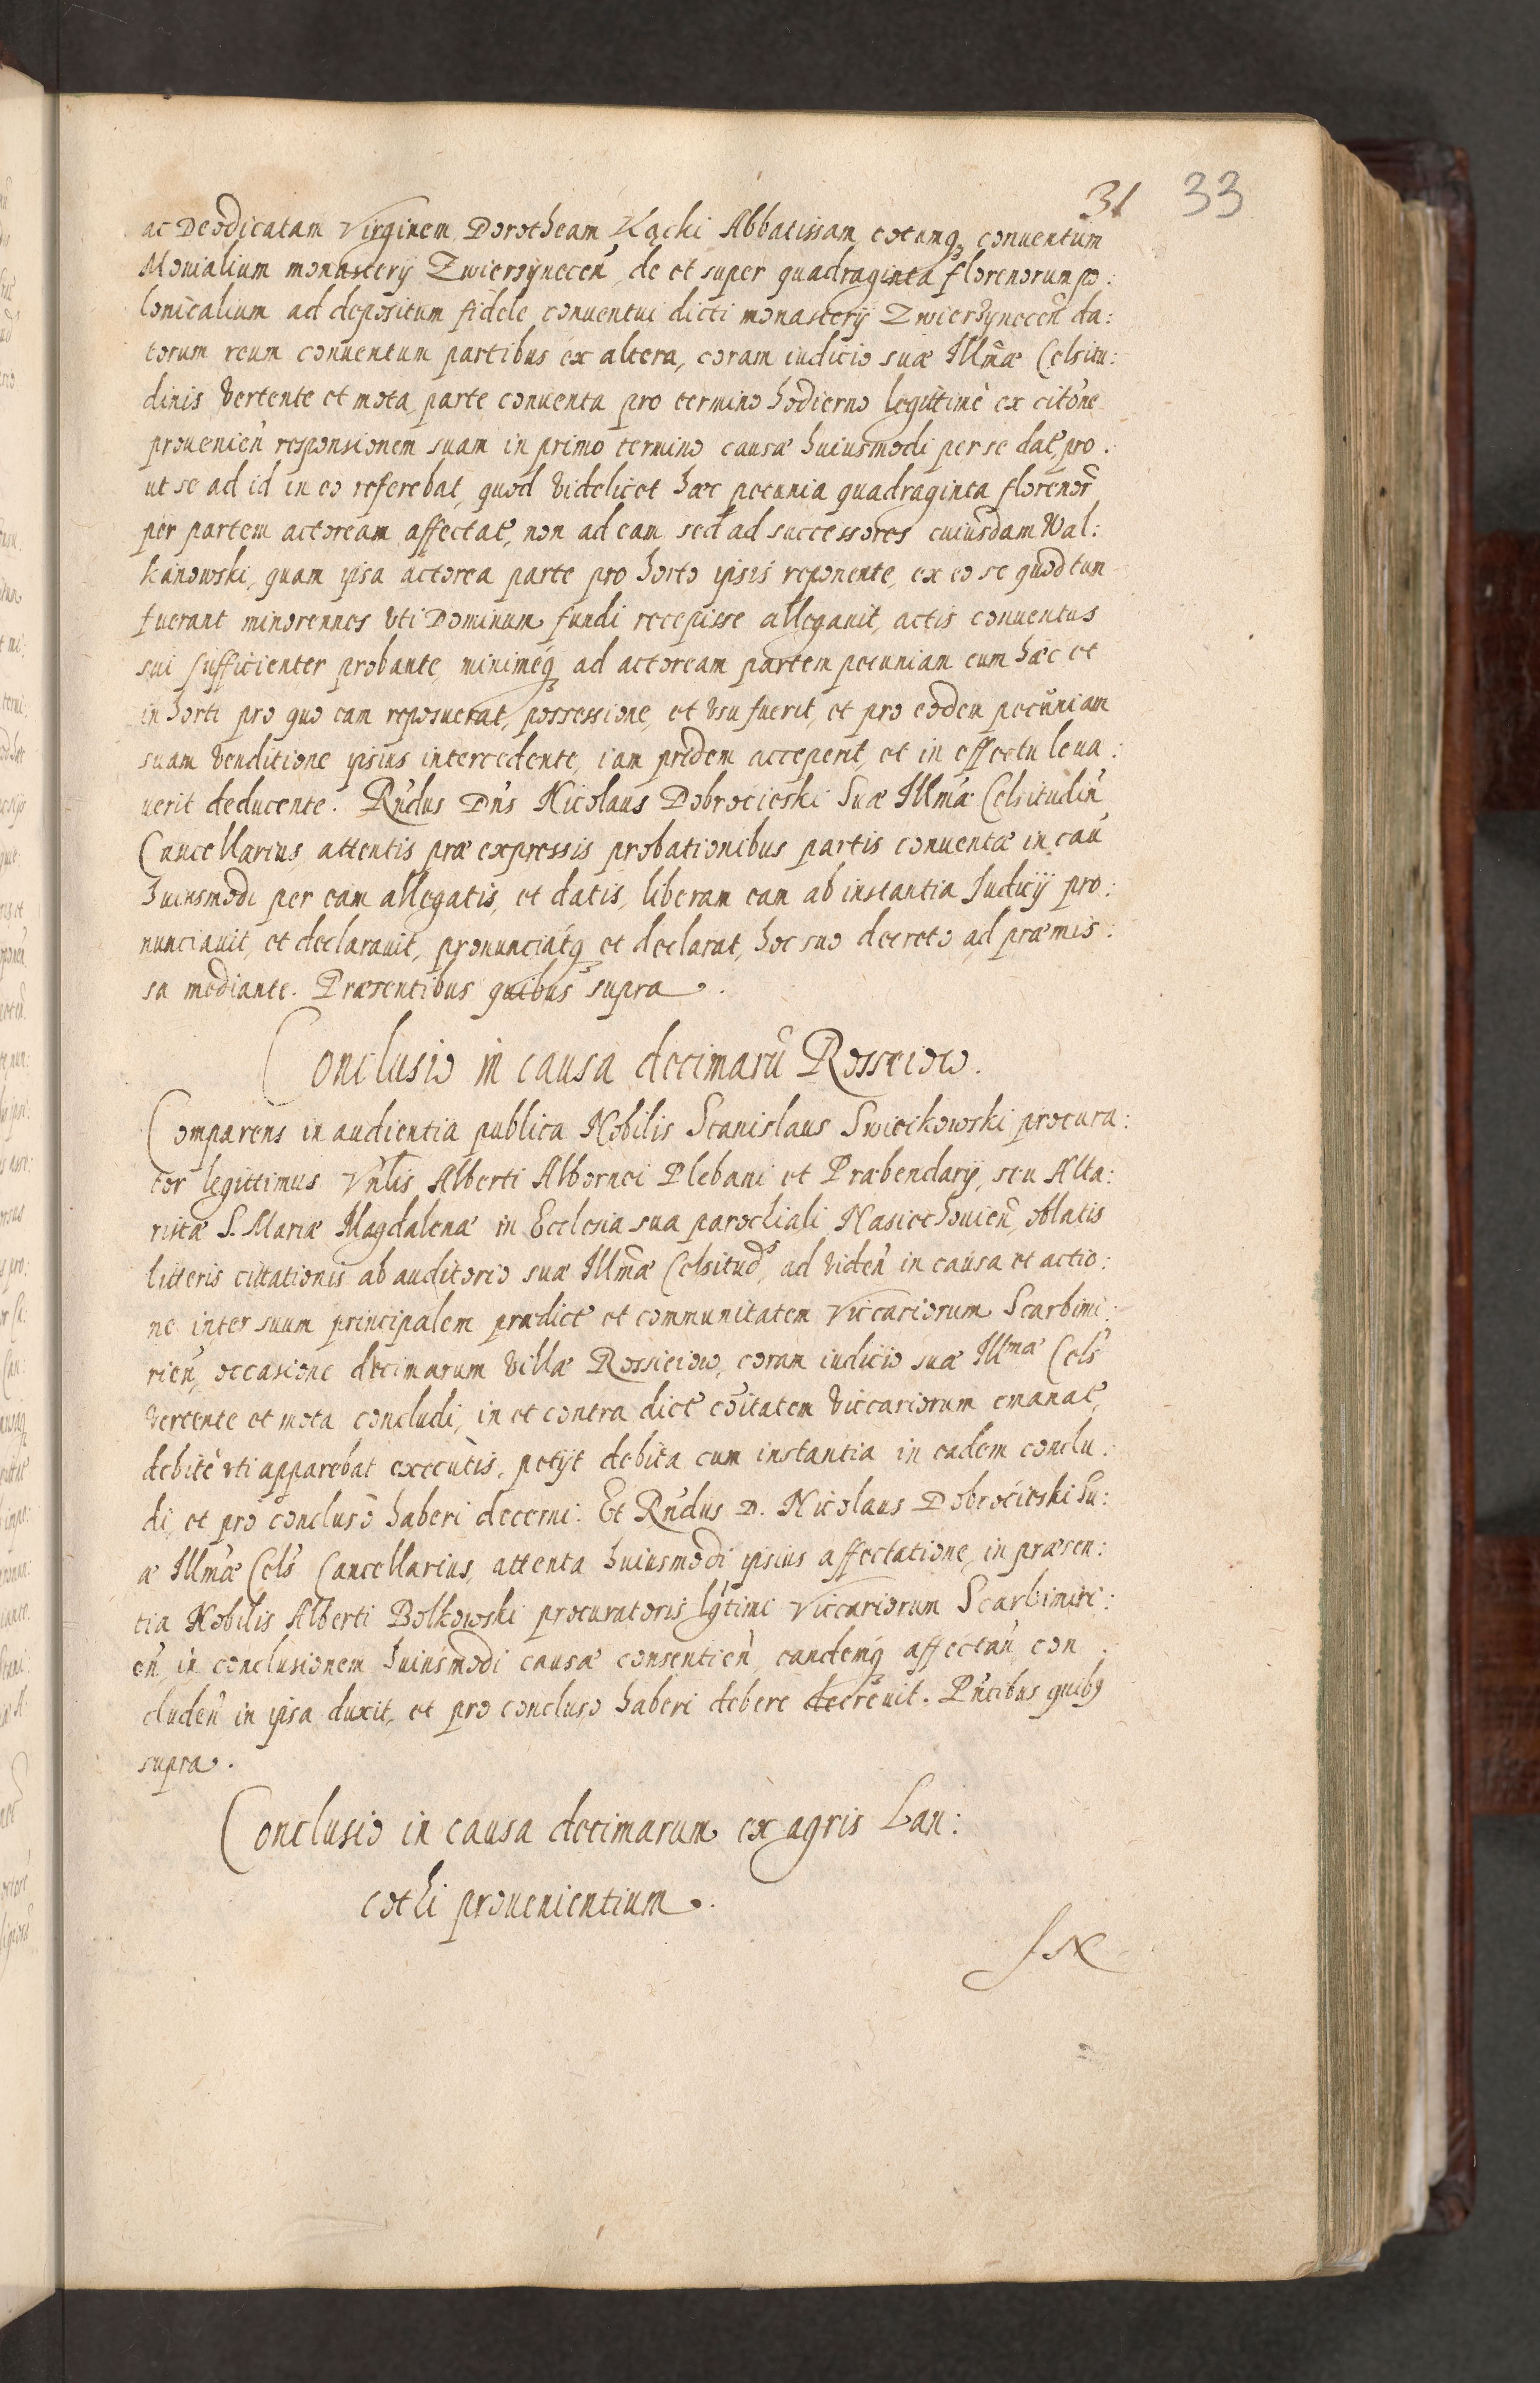 31 33
ac Deodicatam Virginem Dorotheam Kącki Abbatissam totumq conuentum
Monialium monastery Zwiersynecen̄, de et super quadraginta florenorum po:
lonicalium ad depositum fidele conuentui dicti monastery Zwiersynecen̄ da:
torum reum conuentum partibus ex altera, coram iudicio suæ Illmæ Celsitu:
dinis vertente et mota, parte conuenta pro termino hodierno legittimè ex citōne
prouenien̄ responsionem suam in primo termino causæ huiusmodi per se dat̄, pro:
ut se ad id in eo referebat, quod videlicet hæc pecunia quadraginta florenor̄
per partem actoream affectat̄, non ad eam sed ad successores cuiusdam Wal:
kanowski, quam ipsa actorea parte pro horto ipsis reponente, ex eo se quod tun
fuerant minorennes vti Dominum fundi recepisse allegauit, actis conuentus
sui sufficienter probante, minimeq́ ad actoream partem pecuniam eum hæc et
in horti pro quo eam reposuerat, possessione, et vsu fuerit, et pro eodem pecuniam
suam venditione ipsius intercedente, iam pridem acceperit, et in effectu leua:
uerit deducente. Rn̄dus Dn̄s Nicolaus Dobrocieski Suæ Illmæ Celsitudin̄
Cancellarius, attentis præexpressis probationibus partis conuentæ in cau̅
huiusmodi per eam allegatis, et datis, liberam eam ab instantia Iudicij pro:
nunciauit, et declarauit, pronunciatq́ et declarat, hoc suo decreto ad præmis:
sa mediante. Præsentibus quibus supra.
Conclusio in causa decimarū Rosseiow.
Comparens in audientia publica Nobilis Stanislaus Swieikowski procura:
tor legittimus Vn̄lis Alberti Albornei Plebani et Præbendarij, seu Alta:
ristæ S. Mariæ Magdalenæ in Ecclesia sua parochiali Nasiechouien̄, oblatis
litteris cittationis ab auditorio suæ Illmæ Celsitud̄s, ad viden̄ in causa et actio:
ne inter suum principalem prædict̄ et communitatem Viccariorum Scarbimi:
rien̄, occasione decimarum villæ Rossieiow, coram iudicio suæ Illmæ Cels̄
vertente et mota concludi, in et contra dict̄ cōitatem viccariorum emanat̄,
debitè vti apparebat executis, petijt debita cum instantia in eadem conclu:
di, et pro concluso haberi decerni. Et Rn̄dus D. Nicolaus Dobrocieski Su:
æ Illmæ Cels̄ Cancellarius, attenta huiusmodi ipsius affectatione, in præsen:
tia Nobilis Alberti Bolkowski procuratoris lg̅timi Viccariorum Scarbimiri:
en̄, in conclusionem huiusmodi causæ consentien̄, eandemq́ affectan̄, con:
cluden̄ in ipsa duxit, et pro concluso haberi debere decreuit. Pn̄tibus quibq
supra.
Conclusio in causa decimarum ex agris Lan:
cothi prouenientium.